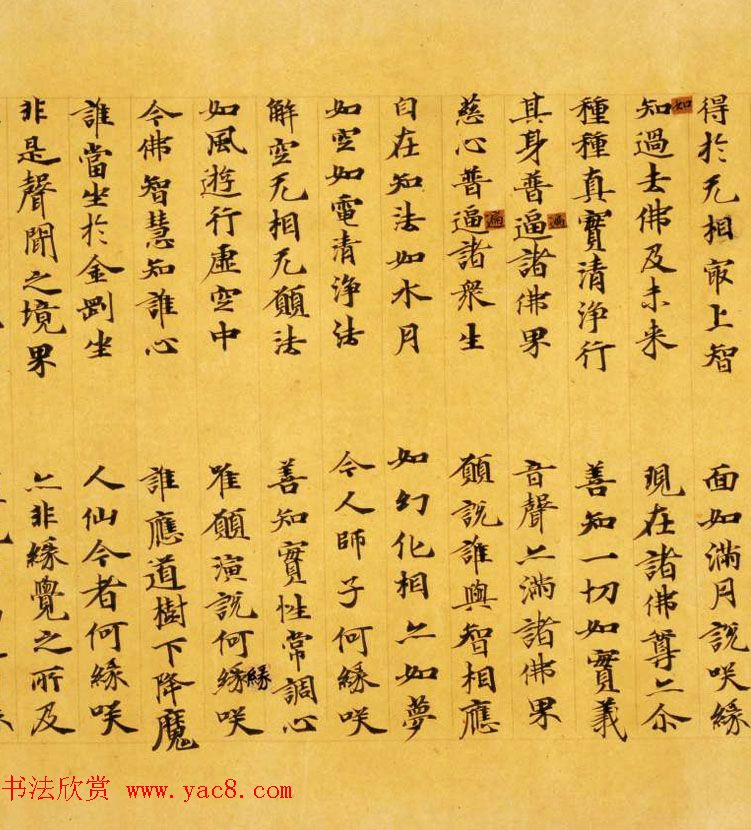 得於无相㝡上智 面如滿月說咲緣
知過去佛及未来 現在諸佛尊亦尒
如
種種真寶清淨行 善知一切如實義
其身普遍諸佛界 音聲亦滿諸佛界
遍
慈心普遍諸衆生 願說誰與智相應
遍
自在知法如水月 如幻化相亦如夢
如空如電清淨法 今人師子何緣咲
解空无相无願法 善知實性常調心
如風遊行虛空中 唯願演說何緣咲
緣
令佛智慧知誰心 誰應道樹下降魔
誰當坐於金剛坐 人仙今者何緣咲
非是聲聞之境界 亦非緣覺之所及
书法欣赏 www.yac8.com